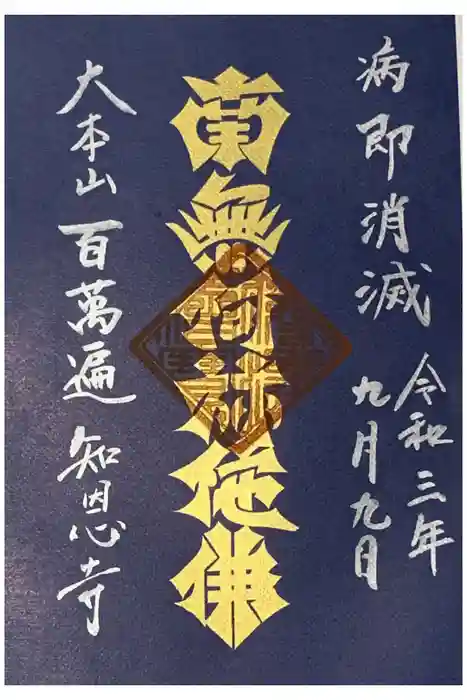 病即消滅
令和三年
九月九日
南無阿弥陀佛
大本山 百萬遍 知恩寺